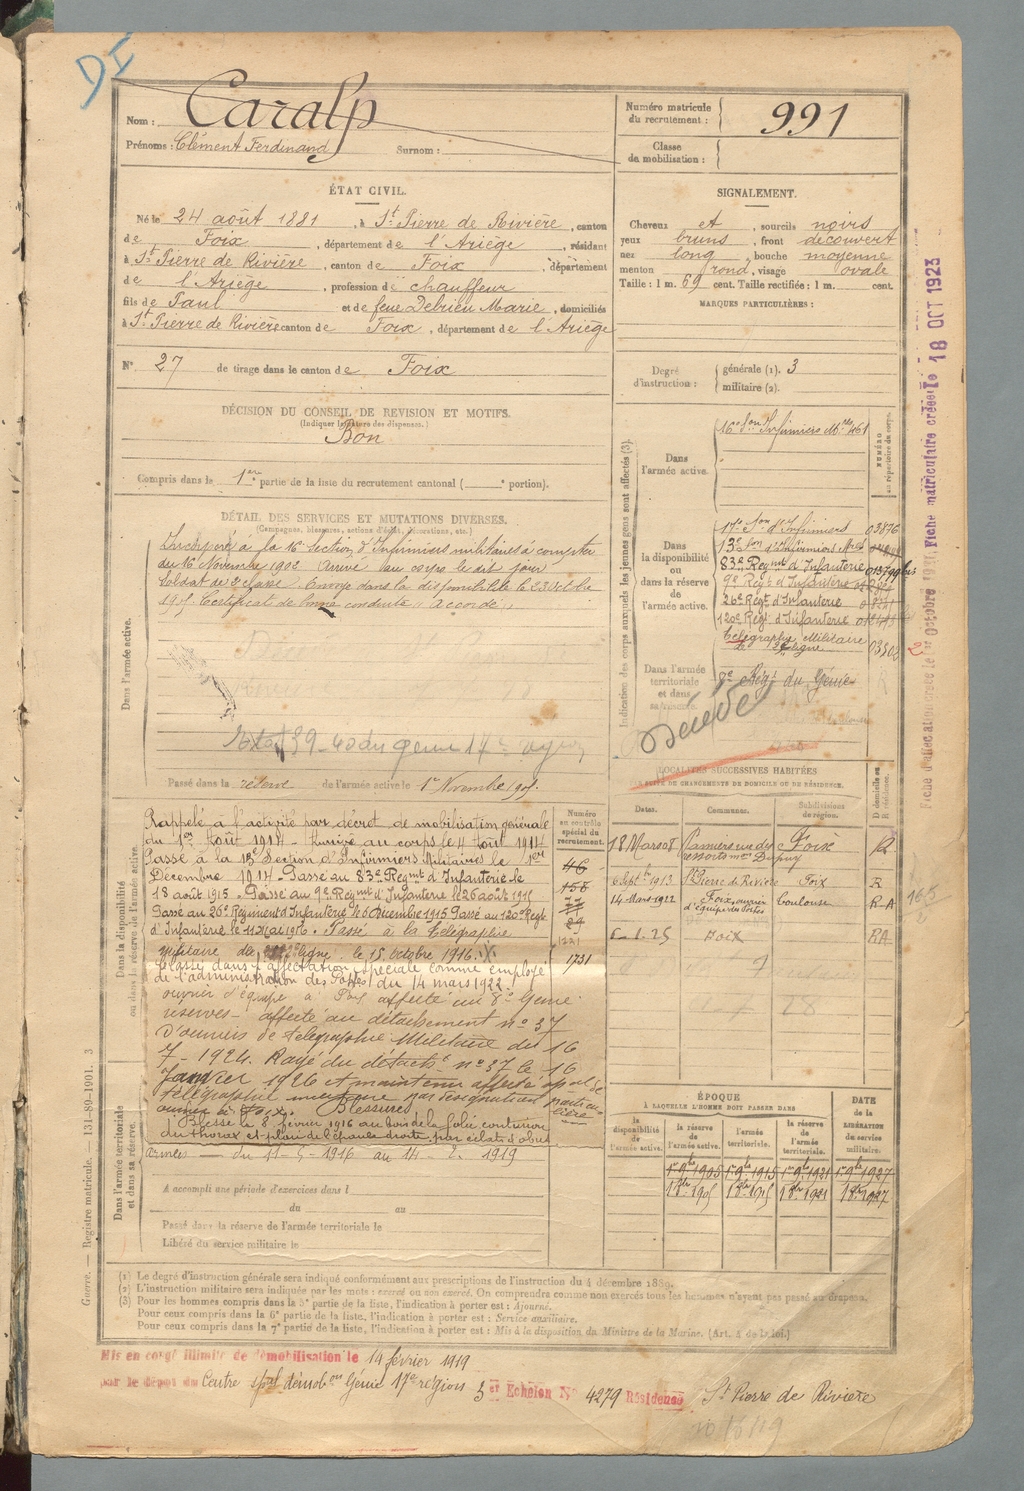 DI
Nom : Caralp
Prénoms : Clément Ferdinand Surnom :
Numéro matricule du recrutement : 991
Classe de mobilisation :
ÉTAT CIVIL.
Né le 24 août 1881, à St Pierre de Rivière, canton
de Foix, département de l'Ariège, résidant
à St Pierre de Rivière, canton de Foix, département
de l'Ariège, profession de chauffeur
fils de Paul et de feue Debrieu Marie, domiciliés
à St Pierre de Rivière canton de Foix, département de l'Ariège
SIGNALEMENT.
Cheveux et, sourcils noirs
yeux bruns, front découvert
nez long, bouche moyenne
menton rond, visage ovale
Taille : 1 m. 69 cent. Taille rectifiée : 1 m. cent.
MARQUES PARTICULIÈRES :
N° 27 de tirage dans le canton de Foix
Degré d'instruction : générale (1). 3
militaire (2).
DÉCISION DU CONSEIL DE REVISION ET MOTIFS.
(Indiquer la nature des dispenses.)
Bon
Compris dans la 1ère partie de la liste du recrutement cantonal ( portion).
DÉTAIL DES SERVICES ET MUTATIONS DIVERSES.
(Campagnes, blessures, actions d'éclat, décorations, etc.)
Dans l'armée active.
Incorporé à la 16e Section d'Infirmiers militaires à compter
du 16 Novembre 1902 Arrivé au corps le dit jour
Soldat de 2e classe. Envoyé dans la disponibilité le 23
Certificat de bonne conduite "Accordé"
39-40 du génie 17e
Passé dans la réserve de l'armée active le 1er Novembre 1905
Indication des corps auxquels les jeunes gens sont affectés (3).
NUMÉRO au répertoire du corps.
Dans l'armée active.
16e Son Infirmiers Mres 461
Dans la disponibilité ou dans la réserve de l'armée active.
17e Son d'Infirmiers 03876
13e Son d'Infirmiers Mres
83e Régmt d'Infanterie 013799 bis
9e Régt d'Infanterie
26e Régt d'Infanterie
120e Régt d'Infanterie
Télégraphie Militaire
2e ligne 03502
Dans l'armée territoriale et dans sa réserve.
8e Régt du Génie
Fiche d'affectation créée le 1er Octobre Fiche matriculaire créée le 18 OCT 1923
LOCALITÉS SUCCESSIVES HABITÉES
PAR SUITE DE CHANGEMENTS DE DOMICILE OU DE RÉSIDENCE.
Dates. Communes. Subdivisions de région. D domicile ou R résidence.
18 Mars 08 Pamiers rue des Dupuy Foix R
6 Septbre 1913 St Pierre de Rivière Foix R
14-Mars-1922 Foix, ouvrier d'équipe des Postes Toulouse R-A
5-1.25 Foix RA
Dans la disponibilité ou dans la réserve de l'armée active.
Numéro au contrôle spécial du recrutement.
Rappelé à l'activité par décret de mobilisation générale
du 1er Août 1914 Arrivé au corps le 4 Août 1914
Passé à la 13e Section d'Infirmiers Militaires le 1er
Décembre 1914 Passé au 83e Régmt d'Infanterie le
18 août 1915 Passé au 9e Régmt d'Infanterie le 26 août 1915
Passé au 26e Régiment d'Infanterie le 6 Décembre 1915 Passé au 120e Régt
d'Infanterie le 11 Mai 1916. Passé à la Télégraphie
militaire de 2e ligne le 15 octobre 1916.
Classé dans l'affectation spéciale comme employé
de l'administration des Postes du 14 mars 1922.
ouvrier d'équipe à Foix affecté au 8e Génie
réserves - affecté au détachement n° 37
d'ouvriers de télégraphie Militaire du 16
7-1924. Rayé du détacht n° 37 le 16
Janvier 1926 et maintenu affecté spécial
télégraphie militaire par désignation particulière
ouvrier à Foix. Blessures
Blessé le 8 février 1916 au bois de la folie contusion
du thorax et plaie de l'épaule droite par éclats d'obus
46
158
77
29
1221
1731
Dans l'armée territoriale et dans sa réserve.
armées — du 11-5-1916 au 14-2.1919
A accompli une période d'exercices dans l
du au
Passé dans la réserve de l'armée territoriale le
Libéré du service militaire le
ÉPOQUE
À LAQUELLE L'HOMME DOIT PASSER DANS
DATE de la LIBÉRATION du service militaire.
la disponibilité de l'armée active. la réserve de l'armée active. l'armée territoriale. la réserve de l'armée territoriale.
1er 9bre 1905 1er 9bre 1915 1er 9bre 1921 1er 9bre 1927
1er 8bre 1905 1er 8bre 1915 1er 8bre 1921 1er 8bre 1927
(1) Le degré d'instruction générale sera indiqué conformément aux prescriptions de l'instruction du 4 décembre 1889.
(2) L'instruction militaire sera indiquée par les mots : exercé ou non exercé. On comprendra comme non exercés tous les hommes n'ayant pas passé au drapeau.
(3) Pour les hommes compris dans la 5e partie de la liste, l'indication à porter est : Ajourné.
Pour ceux compris dans la 6e partie de la liste, l'indication à porter est : Service auxiliaire.
Pour ceux compris dans la 7e partie de la liste, l'indication à porter est : Mis à la disposition du Ministre de la Marine. (Art. 4 de la loi.)
Guerre. — Registre matricule. — 131-89-1901. 3
Mis en congé illimité de démobilisation le 14 février 1919
par le dépôt du Centre spal démobon Génie 17e région 3er Echelon N° 4279 Résidence St Pierre de Rivière